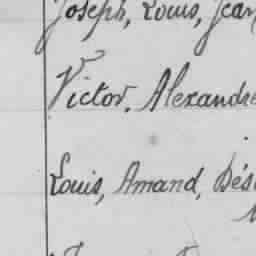 Joseph, Louis, Jean
Victor. Alexandre
Louis, Amand, Dés